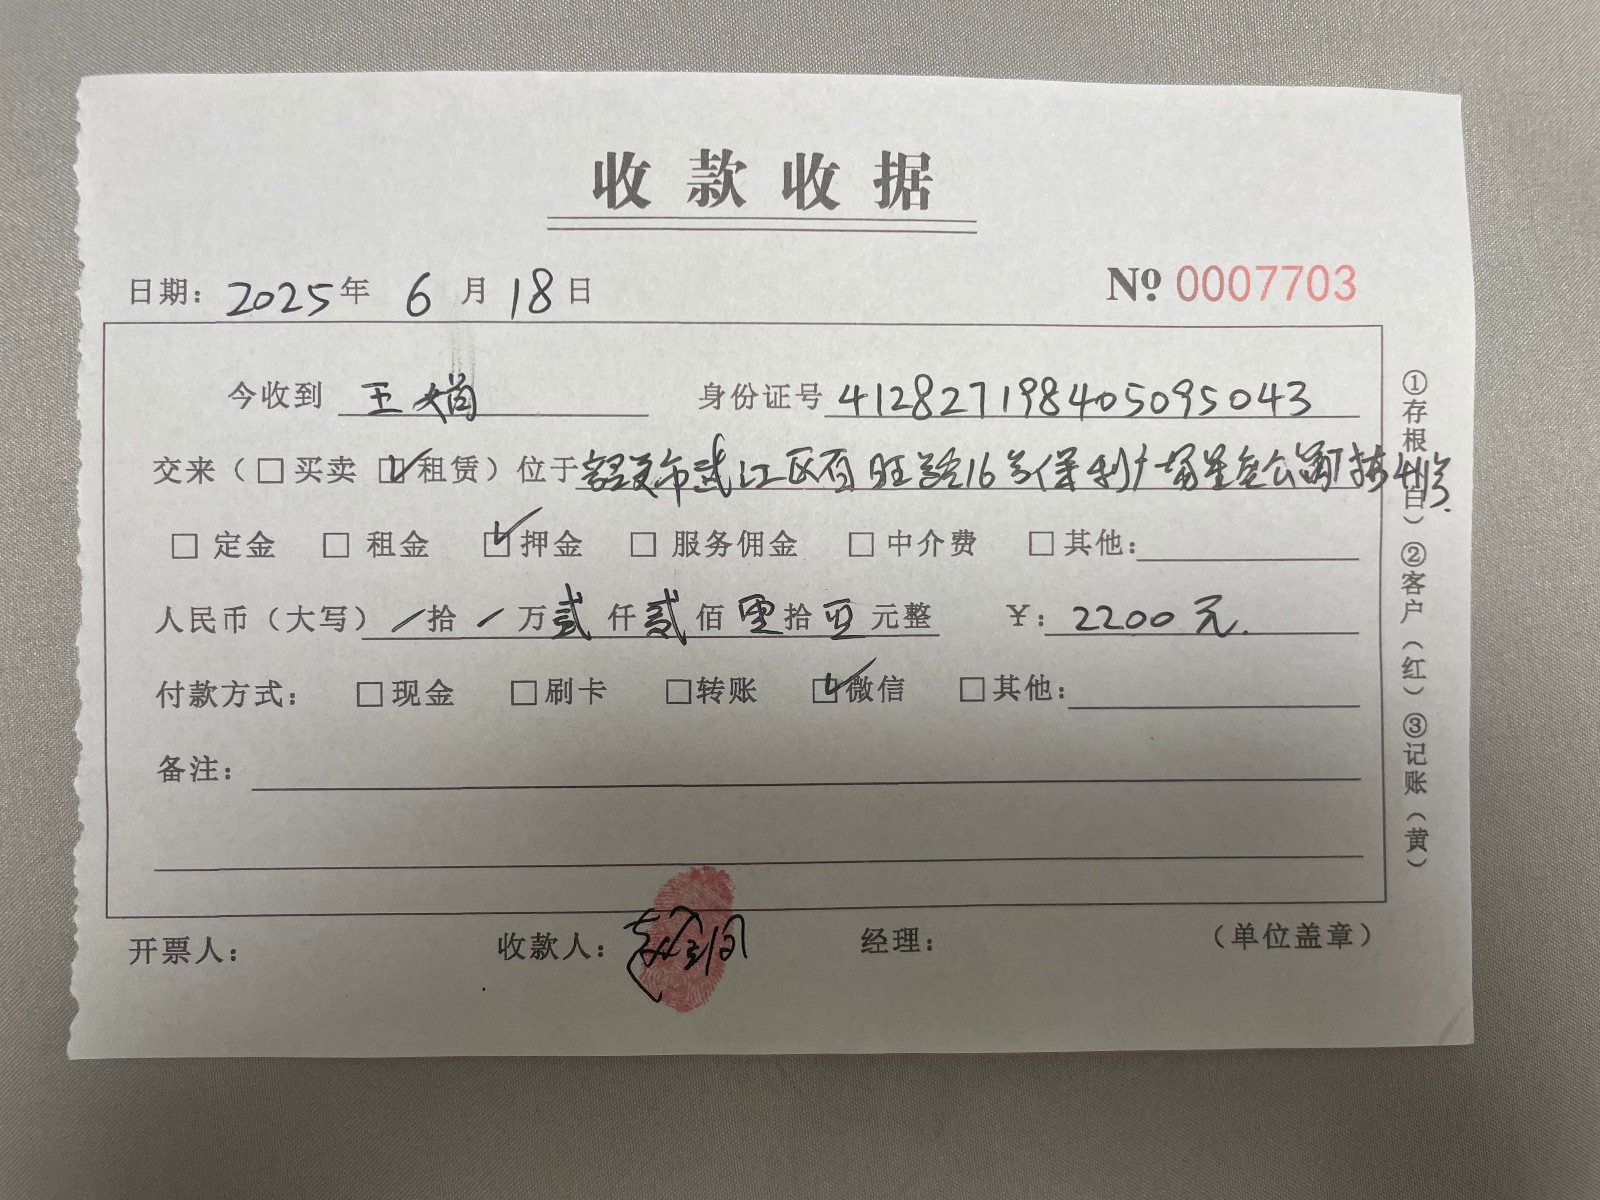 收款收据
日期：2025年 6月 18日 № 0007703
今收到 王娟 身份证号 412827198405095043
交来（□买卖 ☑租赁）位于韶关市武江区百旺路16号保利广场星座公寓
□定金 □租金 ☑押金 □服务佣金 □中介费 □其他：
人民币（大写）/拾/万贰仟贰佰零拾零元整 ￥：2200元.
付款方式： □现金 □刷卡 □转账 ☑微信 □其他：
备注：
开票人： 收款人： 经理： （单位盖章）
①存根（白）②客户（红）③记账（黄）